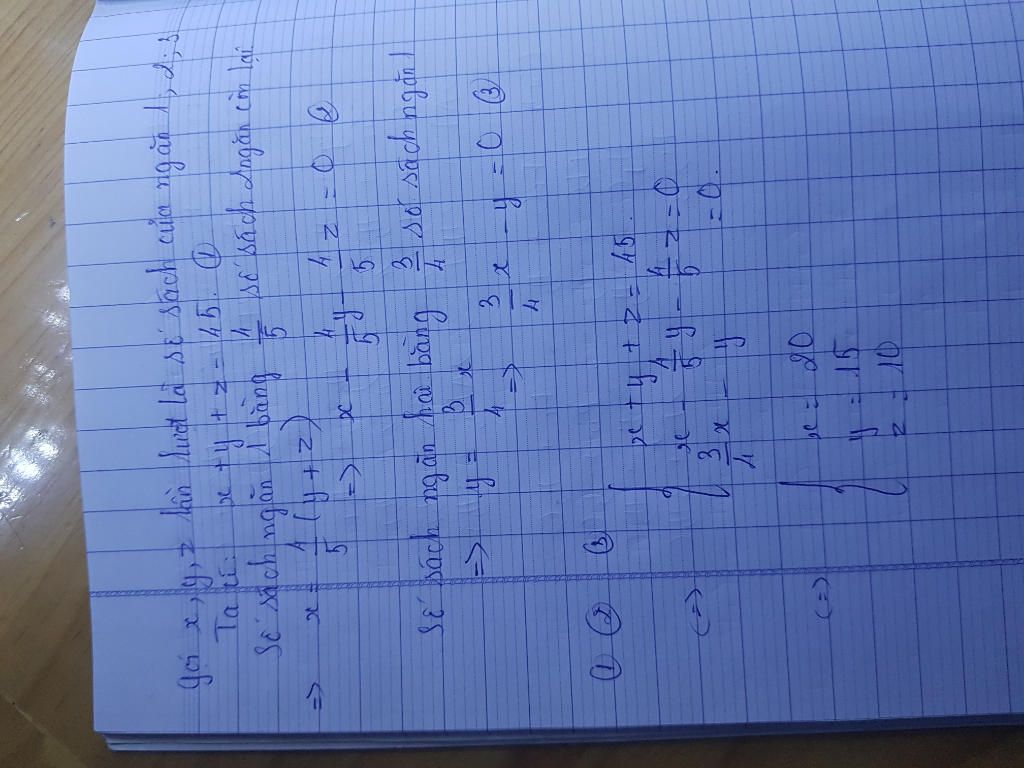 Gọi x, y, z lần lượt là số sách của ngăn 1, 2, 3
Ta có: x + y + z = 45. ①
Số sách ngăn 1 bằng 4/5 số sách 2 ngăn còn lại
=> x = 4/5 (y + z)
=> x - 4/5 y - 4/5 z = 0 ②
Số sách ngăn hai bằng 3/4 số sách ngăn 1
=> y = 3/4 x
=> 3/4 x - y = 0 ③
① ② ③
(=> { x + y + z = 45.
x - 4/5 y - 4/5 z = 0
3/4 x - y = 0.
(=> { x = 20
y = 15
z = 10